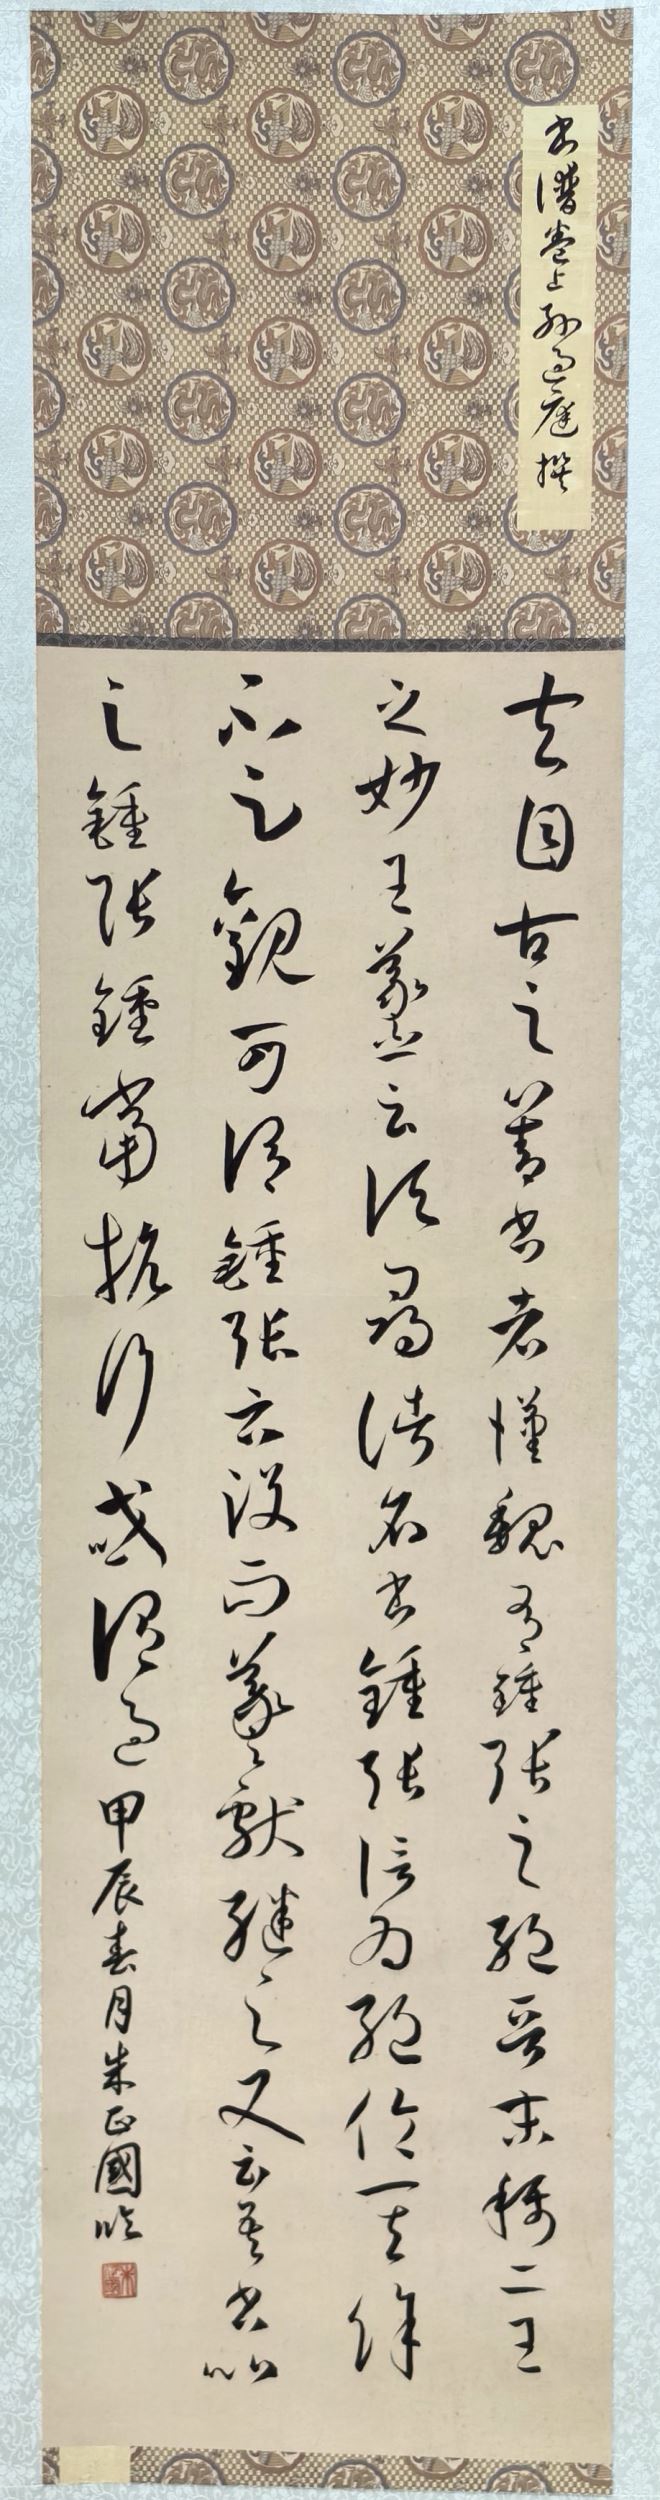 書譜卷上孫過庭撰
夫自古之善書者漢魏有鍾張之絕晉末稱二王
之妙王羲之云頃尋諸名書鍾張信為絕倫其餘
不足觀可謂鍾張云沒而羲獻繼之又云吾書比
之鍾張鍾當抗行或謂過甲辰春月朱正國臨